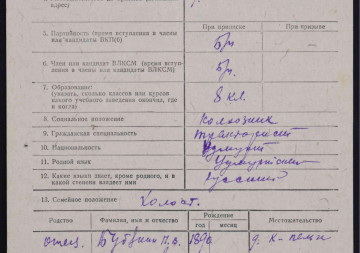 При приписке При призыве
5. Партийность (время вступления в члены
или кандидаты ВКП(б)
б/п
6. Член или кандидат ВЛКСМ (время вступ-
ления в члены или кандидаты ВЛКСМ)
б/п.
7. Образование:
(указать, сколько классов или курсов
какого учебного заведения окончил, где
и когда)
8 кл.
8. Социальное положение
колхозник
9. Гражданская специальность
тракторист
10. Национальность
удмурт
11. Родной язык
удмуртский
12. Какие языки знает, кроме родного, и в
какой степени владеет ими
русский
13. Семейное положение
холост.
Родство Фамилия, имя и отчество Рождение Местожительство
год месяц
отец 1890 д.